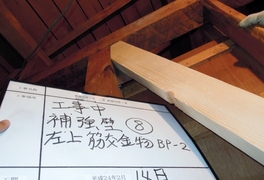 工事中
補強壁 ⑧
左上 筋交金物 BP-2
平成24年2月 14日